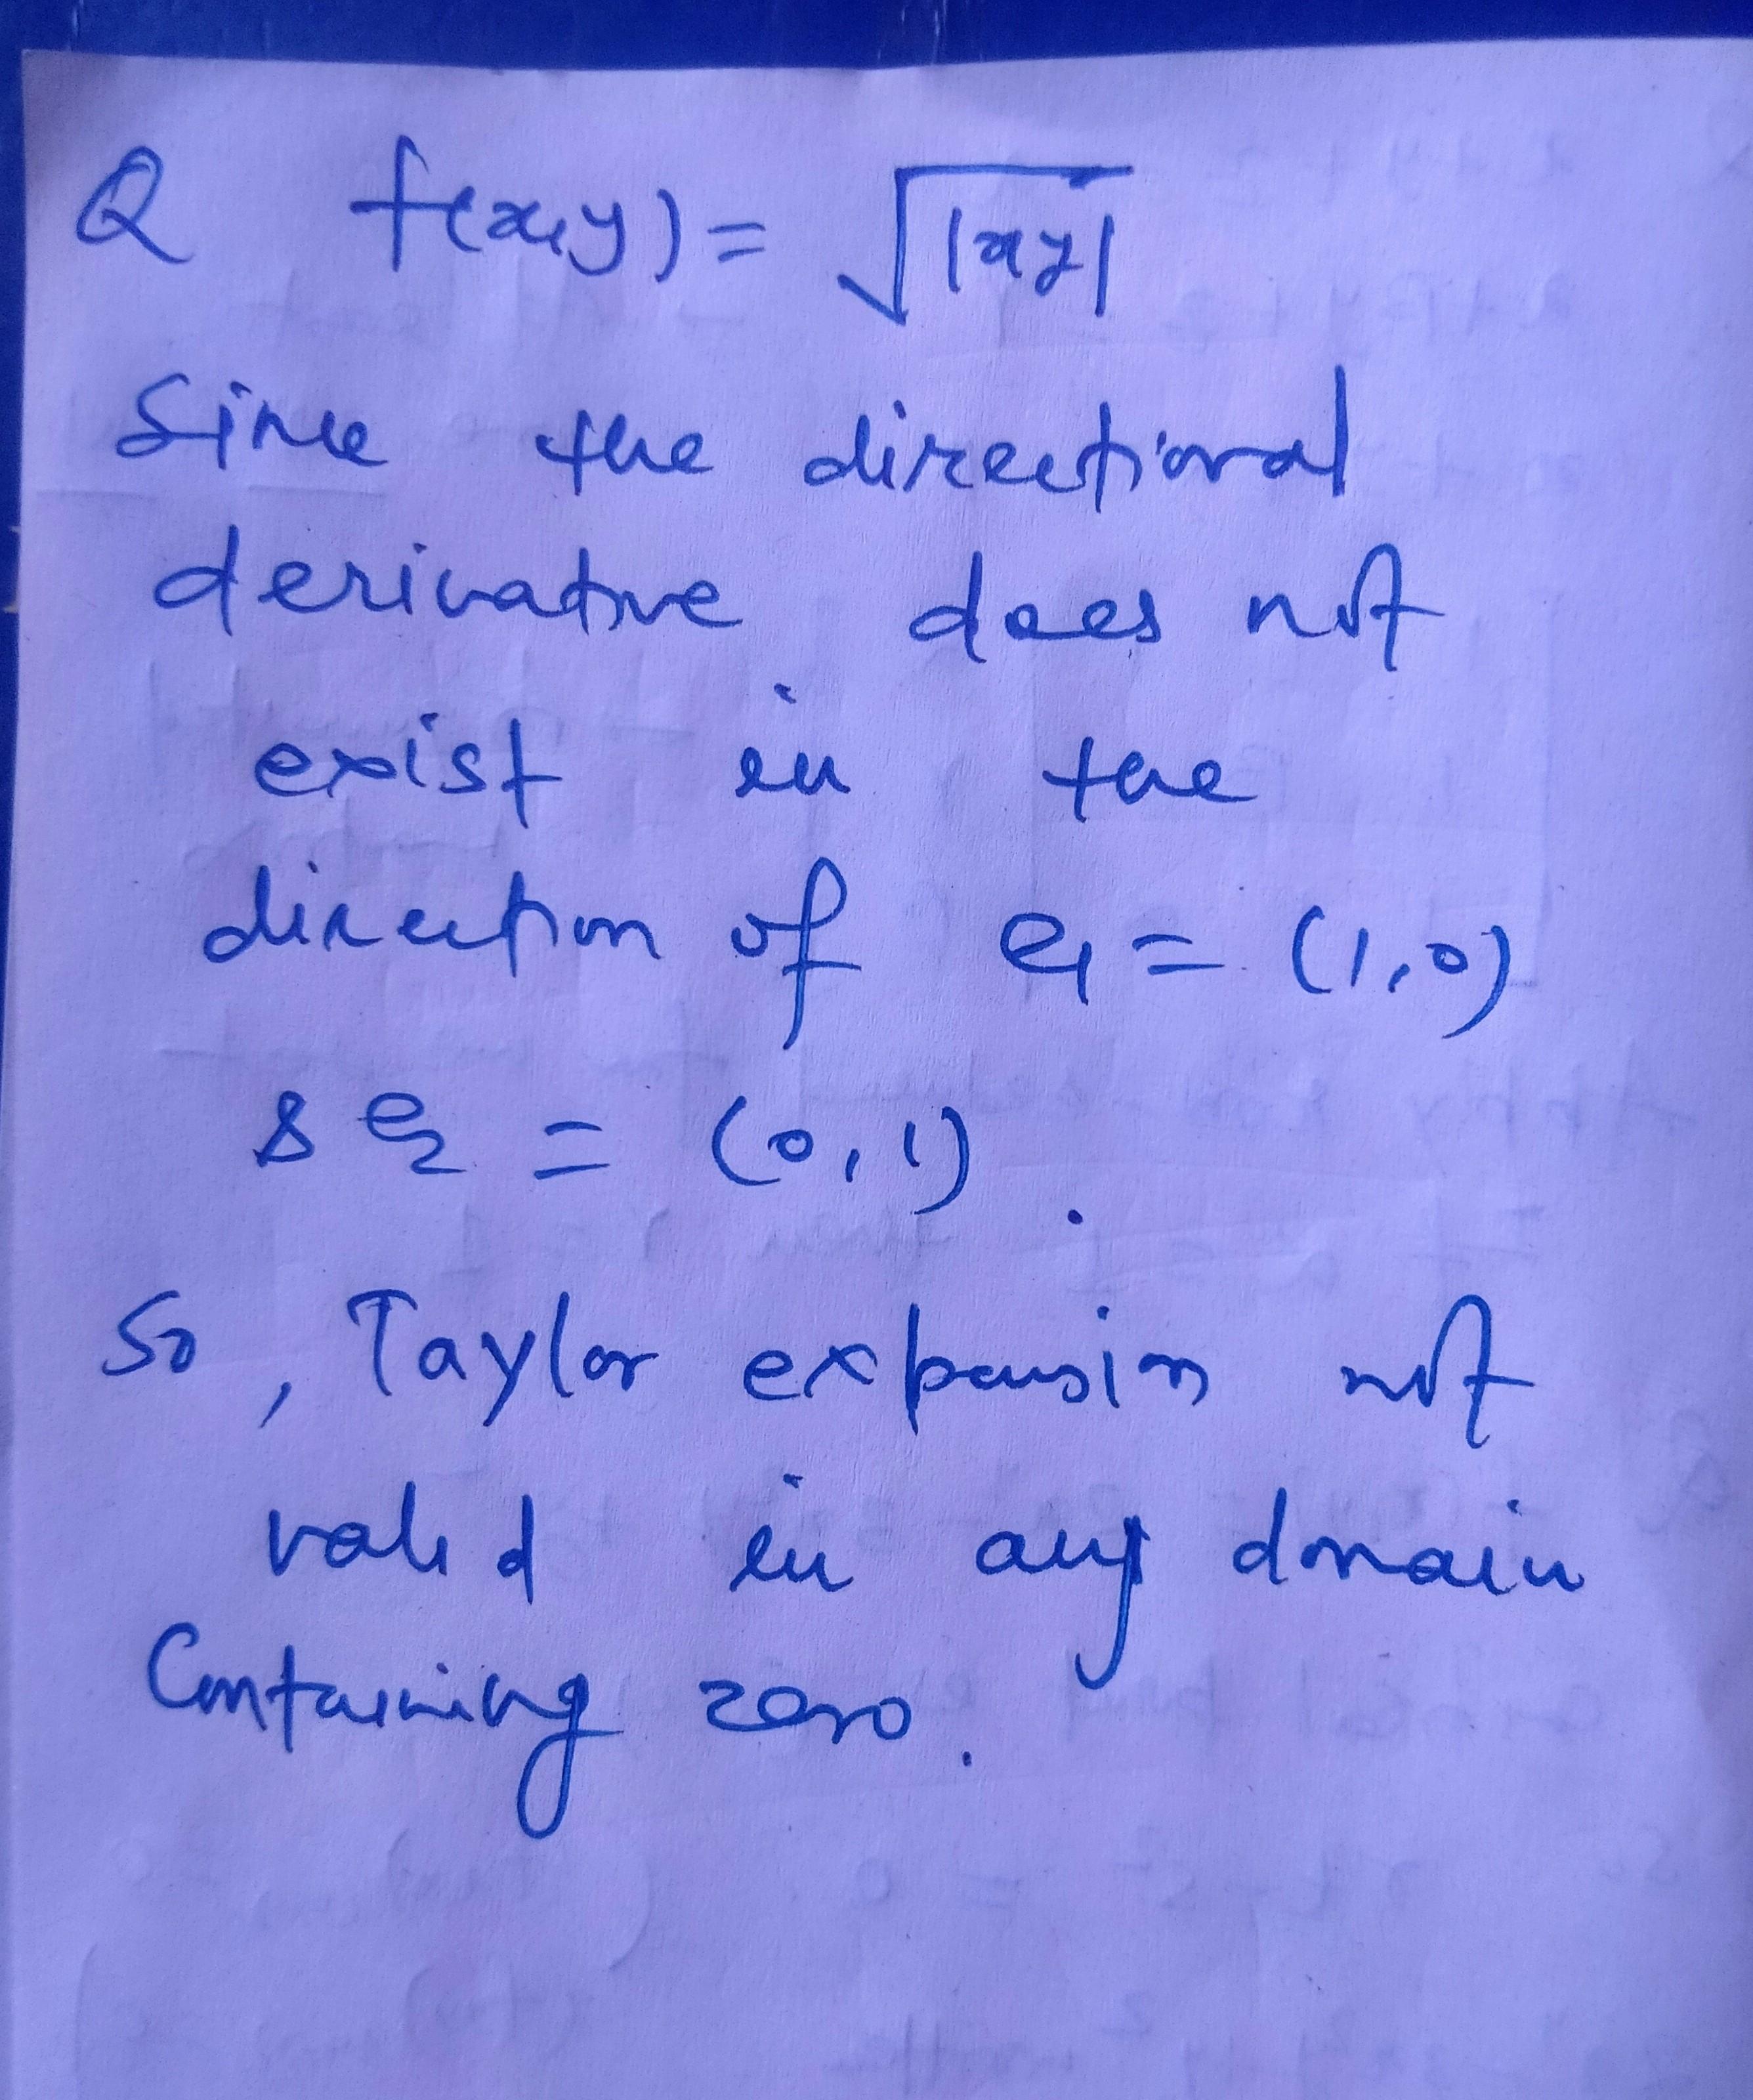 Q f(x,y) = √|xy|
Since the directional
derivative does not
exist in the
direction of e₁ = (1,0)
& e₂ = (0,1).
So, Taylor expansion not
valid in any domain
Containing zero.